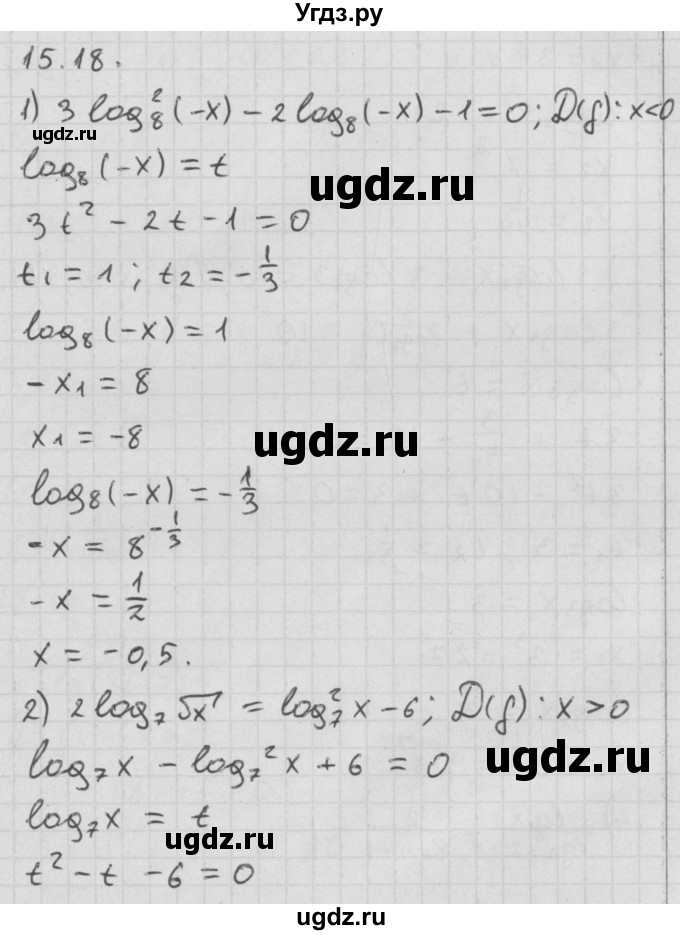 Угдз.ру
15.18.
1) 3 log₈²(-x) - 2 log₈(-x) - 1 = 0; D(f): x<0
ugdz.ru
log₈(-x) = t
ugdz.ru
3t² - 2t - 1 = 0
t₁ = 1; t₂ = -1/3
log₈(-x) = 1
-x₁ = 8
x₁ = -8
ugdz.ru
log₈(-x) = -1/3
-x = 8^(-1/3)
-x = 1/2
ugdz.ru
x = -0,5.
2) 2 log₇ √x = log₇² x - 6; D(f): x > 0
log₇ x - log₇² x + 6 = 0
ugdz.ru
log₇ x = t
ugdz.ru
t² - t - 6 = 0
ugdz.ru